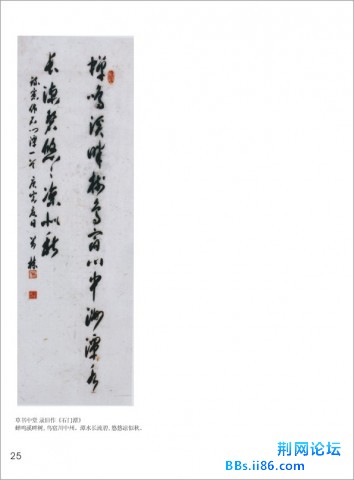 蝉鸣溪畔树鸟宿川中洲潭水
长流碧悠々凉似秋
录旧作石门潭一首 庚寅夏日
草书中堂 录旧作《石门潭》
蝉鸣溪畔树,鸟宿川中州。潭水长流碧,悠悠凉似秋。
25
荆网论坛
BBs.ii86.com